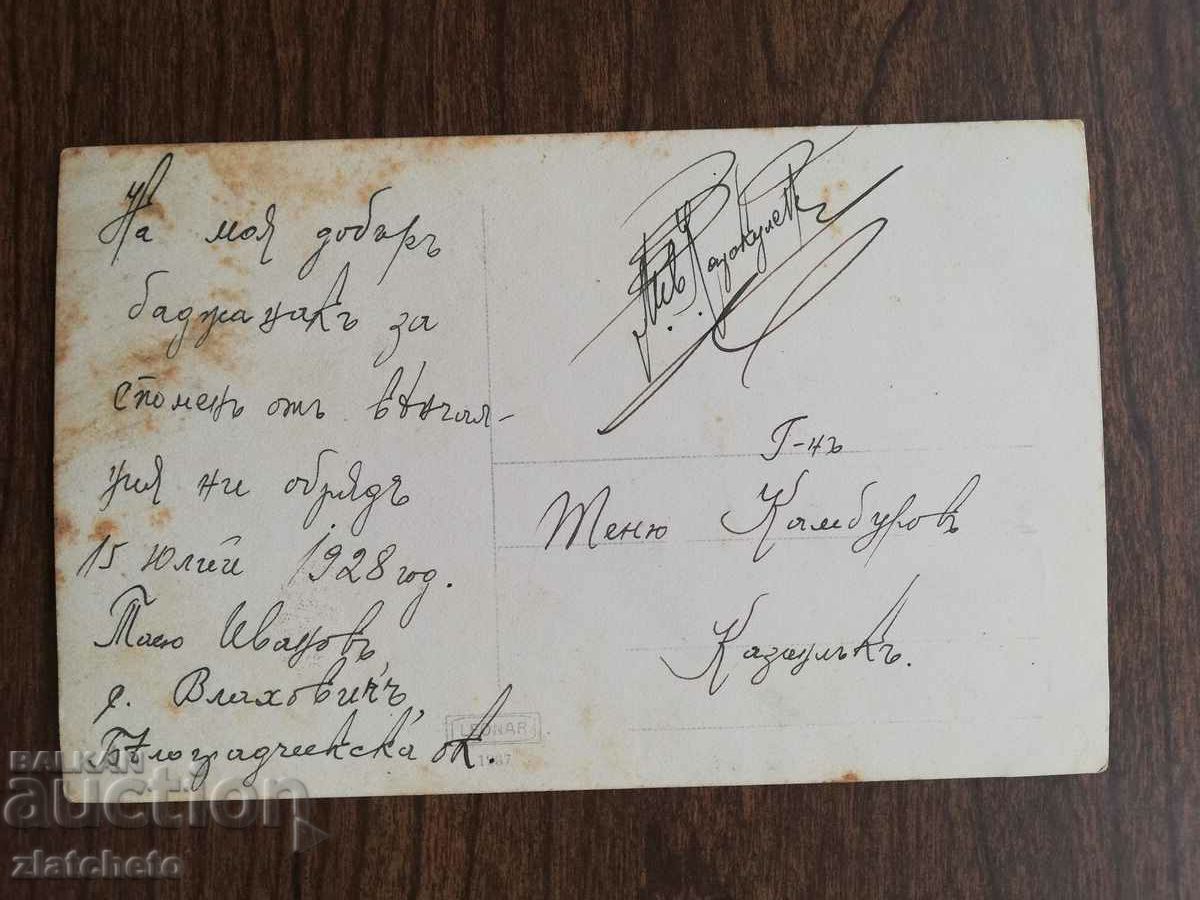 На моя добъръ
баджанакъ за
споменъ отъ вѣнчал-
ния ни обрядъ
15 Юлий 1928 год.
Таню Ивановъ,
с. Влаховичъ,
Бѣлоградчикска ок.
Г-нъ
Теню Камбуровъ
Казанлъкъ.
LEONAR
BALKAN
auction
zlatcheto